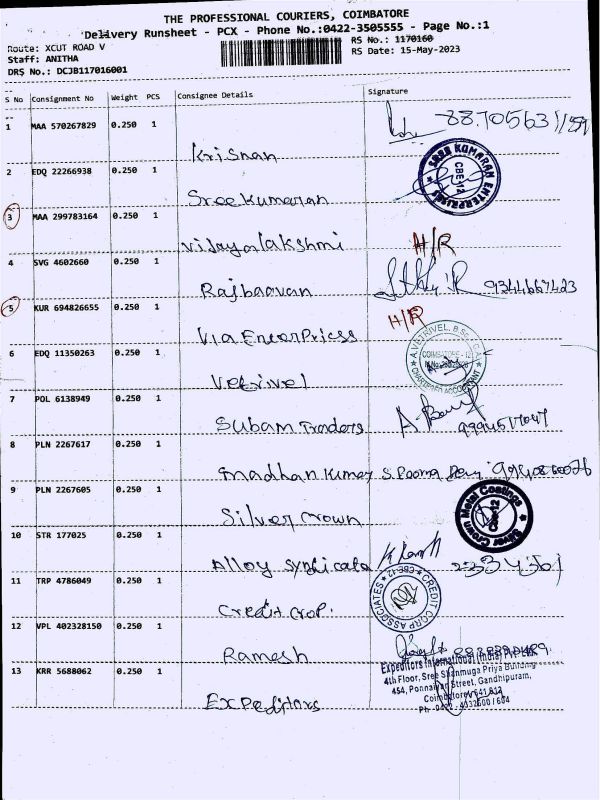 THE PROFESSIONAL COURIERS, COIMBATORE
Delivery Runsheet - PCX - Phone No.:0422-3505555 - Page No.:1
Route: XCUT ROAD V RS No.: 1170160
Staff: ANITHA RS Date: 15-May-2023
DRS No.: DCJB117016001
S No Consignment No Weight PCS Consignee Details Signature
1 MAA 570267829 0.250 1
Krisnan
2 EDQ 22266938 0.250 1
SREE KUMARAN ENTERPRISES CBE-12
Sree Kumaran
3 MAA 299783164 0.250 1
Vijayalakshmi H/R
4 SVG 4602660 0.250 1
Rajbaavan 9344667423
5 KUR 694826655 0.250 1 H/R
Via EnterPricss
6 EDQ 11350263 0.250 1 A.VETRIVEL, B.Sc., C.A. COIMBATORE - 12 CHARTERED ACCOUNTANT
Vetrivel
7 POL 6138949 0.250 1
Subam Traders 9994517047
8 PLN 2267617 0.250 1
madhan Kumar
9 PLN 2267605 0.250 1 Silver Crown Metal Coatings CBE-12
Silver Crown
10 STR 177025 0.250 1
Alloy Syndicate
11 TRP 4786049 0.250 1 CREDIT CORP ASSOCIATES
Credit Crop.
12 VPL 402328150 0.250 1
Ramesh
13 KRR 5688062 0.250 1 Expeditors International (India) Pvt. Ltd.
4th Floor, Sree Shanmuga Priya Building
454, Ponnaiyan Street, Gandhipuram,
Coimbatore - 641 012
Ph : 0422 - 4332600 / 604
Expeditors